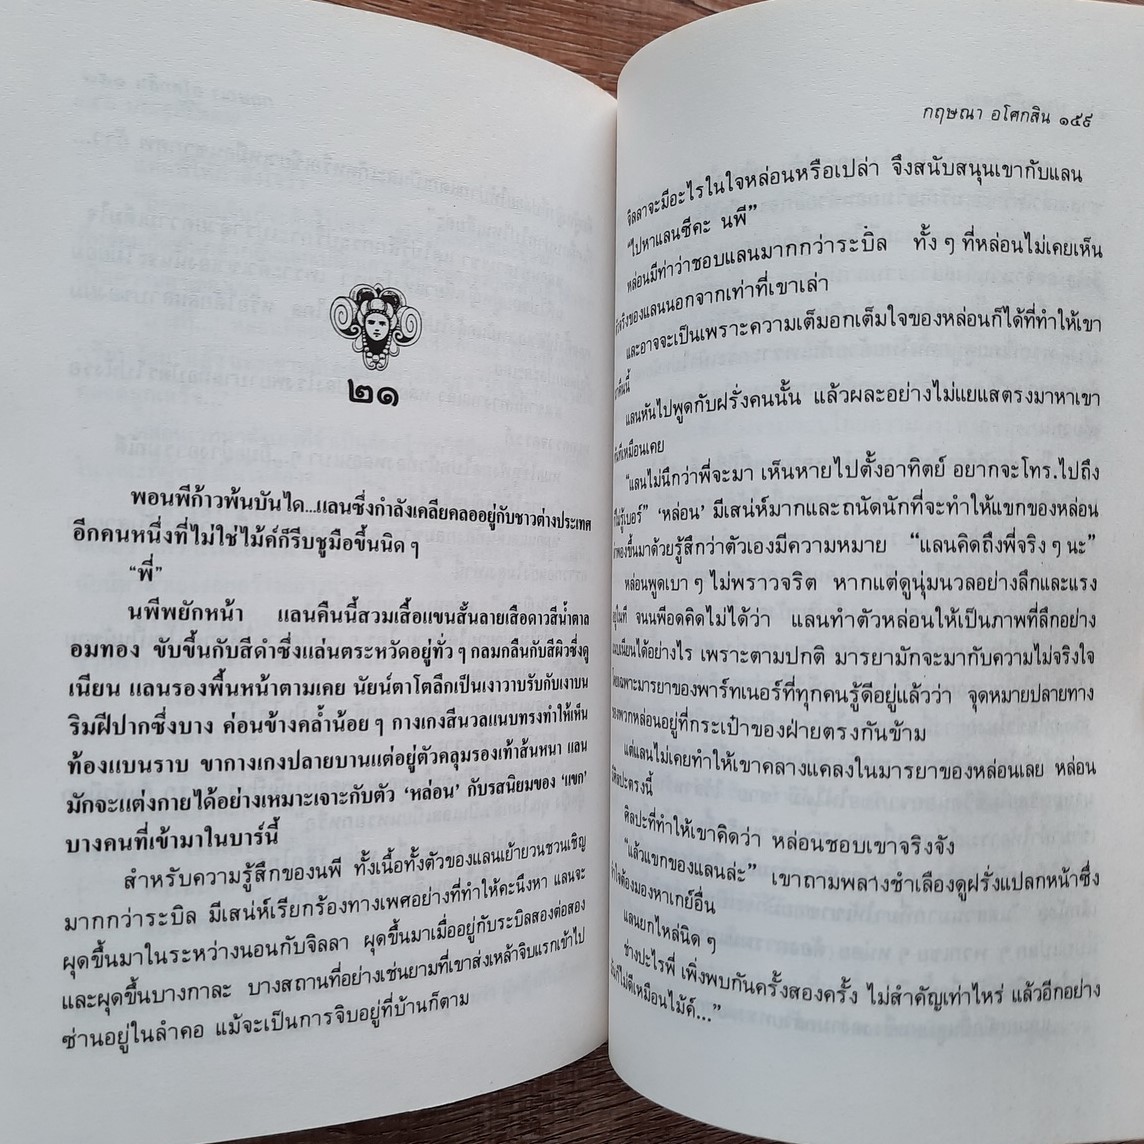 ๒๑
พอนพีก้าวพ้นบันได...แลนซึ่งกำลังเคลียคลออยู่กับชาวต่างประเทศ
อีกคนหนึ่งที่ไม่ใช่ไม้ค์ก็รีบชูมือขึ้นนิด ๆ
“พี่”
นพีพยักหน้า แลนคืนนี้สวมเสื้อแขนสั้นลายเสือดาวสีน้ำตาล
อมทอง ขับขึ้นกับสีดำซึ่งแล่นตระหวัดอยู่ทั่ว ๆ กลมกลืนกับสีผิวซึ่งดู
เนียน แลนรองพื้นหน้าตามเคย นัยน์ตาโตลึกเป็นเงาวาบรับกับเงาบน
ริมฝีปากซึ่งบาง ค่อนข้างคล้ำน้อย ๆ กางเกงสีนวลแนบทรงทำให้เห็น
ท้องแบนราบ ขากางเกงปลายบานแต่อยู่ตัวคลุมรองเท้าส้นหนา แลน
มักจะแต่งกายได้อย่างเหมาะเจาะกับตัว ‘หล่อน’ กับรสนิยมของ ‘แขก’
บางคนที่เข้ามาในบาร์นี้
สำหรับความรู้สึกของนพี ทั้งเนื้อทั้งตัวของแลนเย้ายวนชวนเชิญ
มากกว่าระบิล มีเสน่ห์เรียกร้องทางเพศอย่างที่ทำให้คะนึงหา แลนจะ
ผุดขึ้นมาในระหว่างนอนกับจิลลา ผุดขึ้นมาเมื่ออยู่กับระบิลสองต่อสอง
และผุดขึ้นบางกาละ บางสถานที่อย่างเช่นยามที่เขาส่งเหล้าจิบแรกเข้าไป
ซ่านอยู่ในลำคอ แม้จะเป็นการจิบอยู่ที่บ้านก็ตาม
กฤษณา อโศกสิน ๑๕๙
จิลลาจะมีอะไรในใจหล่อนหรือเปล่า จึงสนับสนุนเขากับแลน
“ไปหาแลนซีคะ นพี”
หล่อนมีท่าว่าชอบแลนมากกว่าระบิล ทั้ง ๆ ที่หล่อนไม่เคยเห็น
จริงของแลนนอกจากเท่าที่เขาเล่า
และอาจจะเป็นเพราะความเต็มอกเต็มใจของหล่อนก็ได้ที่ทำให้เขา
คืนนี้
แลนหันไปพูดกับฝรั่งคนนั้น แล้วผละอย่างไม่แยแสตรงมาหาเขา
ทันทีเหมือนเคย
“แลนไม่นึกว่าพี่จะมา เห็นหายไปตั้งอาทิตย์ อยากจะโทร.ไปถึง
รู้เบอร์” ‘หล่อน’ มีเสน่ห์มากและถนัดนักที่จะทำให้แขกของหล่อน
พองขึ้นมาด้วยรู้สึกว่าตัวเองมีความหมาย “แลนคิดถึงพี่จริง ๆ นะ”
หล่อนพูดเบา ๆ ไม่พราวจริต หากแต่ดูนุ่มนวลอย่างลึกและแรง
อยู่ในที จนนพีอดคิดไม่ได้ว่า แลนทำตัวหล่อนให้เป็นภาพที่ลึกอย่าง
แนบเนียนได้อย่างไร เพราะตามปกติ มารยามักจะมากับความไม่จริงใจ
โดยเฉพาะมารยาของพาร์ทเนอร์ที่ทุกคนรู้ดีอยู่แล้วว่า จุดหมายปลายทาง
ของพวกหล่อนอยู่ที่กระเป๋าของฝ่ายตรงกันข้าม
แต่แลนไม่เคยทำให้เขาคลางแคลงในมารยาของหล่อนเลย หล่อน
ศิลปะตรงนี้
ศิลปะที่ทำให้เขาคิดว่า หล่อนชอบเขาจริงจัง
“แล้วแขกของแลนล่ะ” เขาถามพลางชำเลืองดูฝรั่งแปลกหน้าซึ่ง
ต้องมองหาเกย์อื่น
แลนยกไหล่นิด ๆ
“ช่างปะไรพี่ เพิ่งพบกันครั้งสองครั้ง ไม่สำคัญเท่าไหร่ แล้วอีกอย่าง
ก็ไม่ดีเหมือนไม้ค์...”